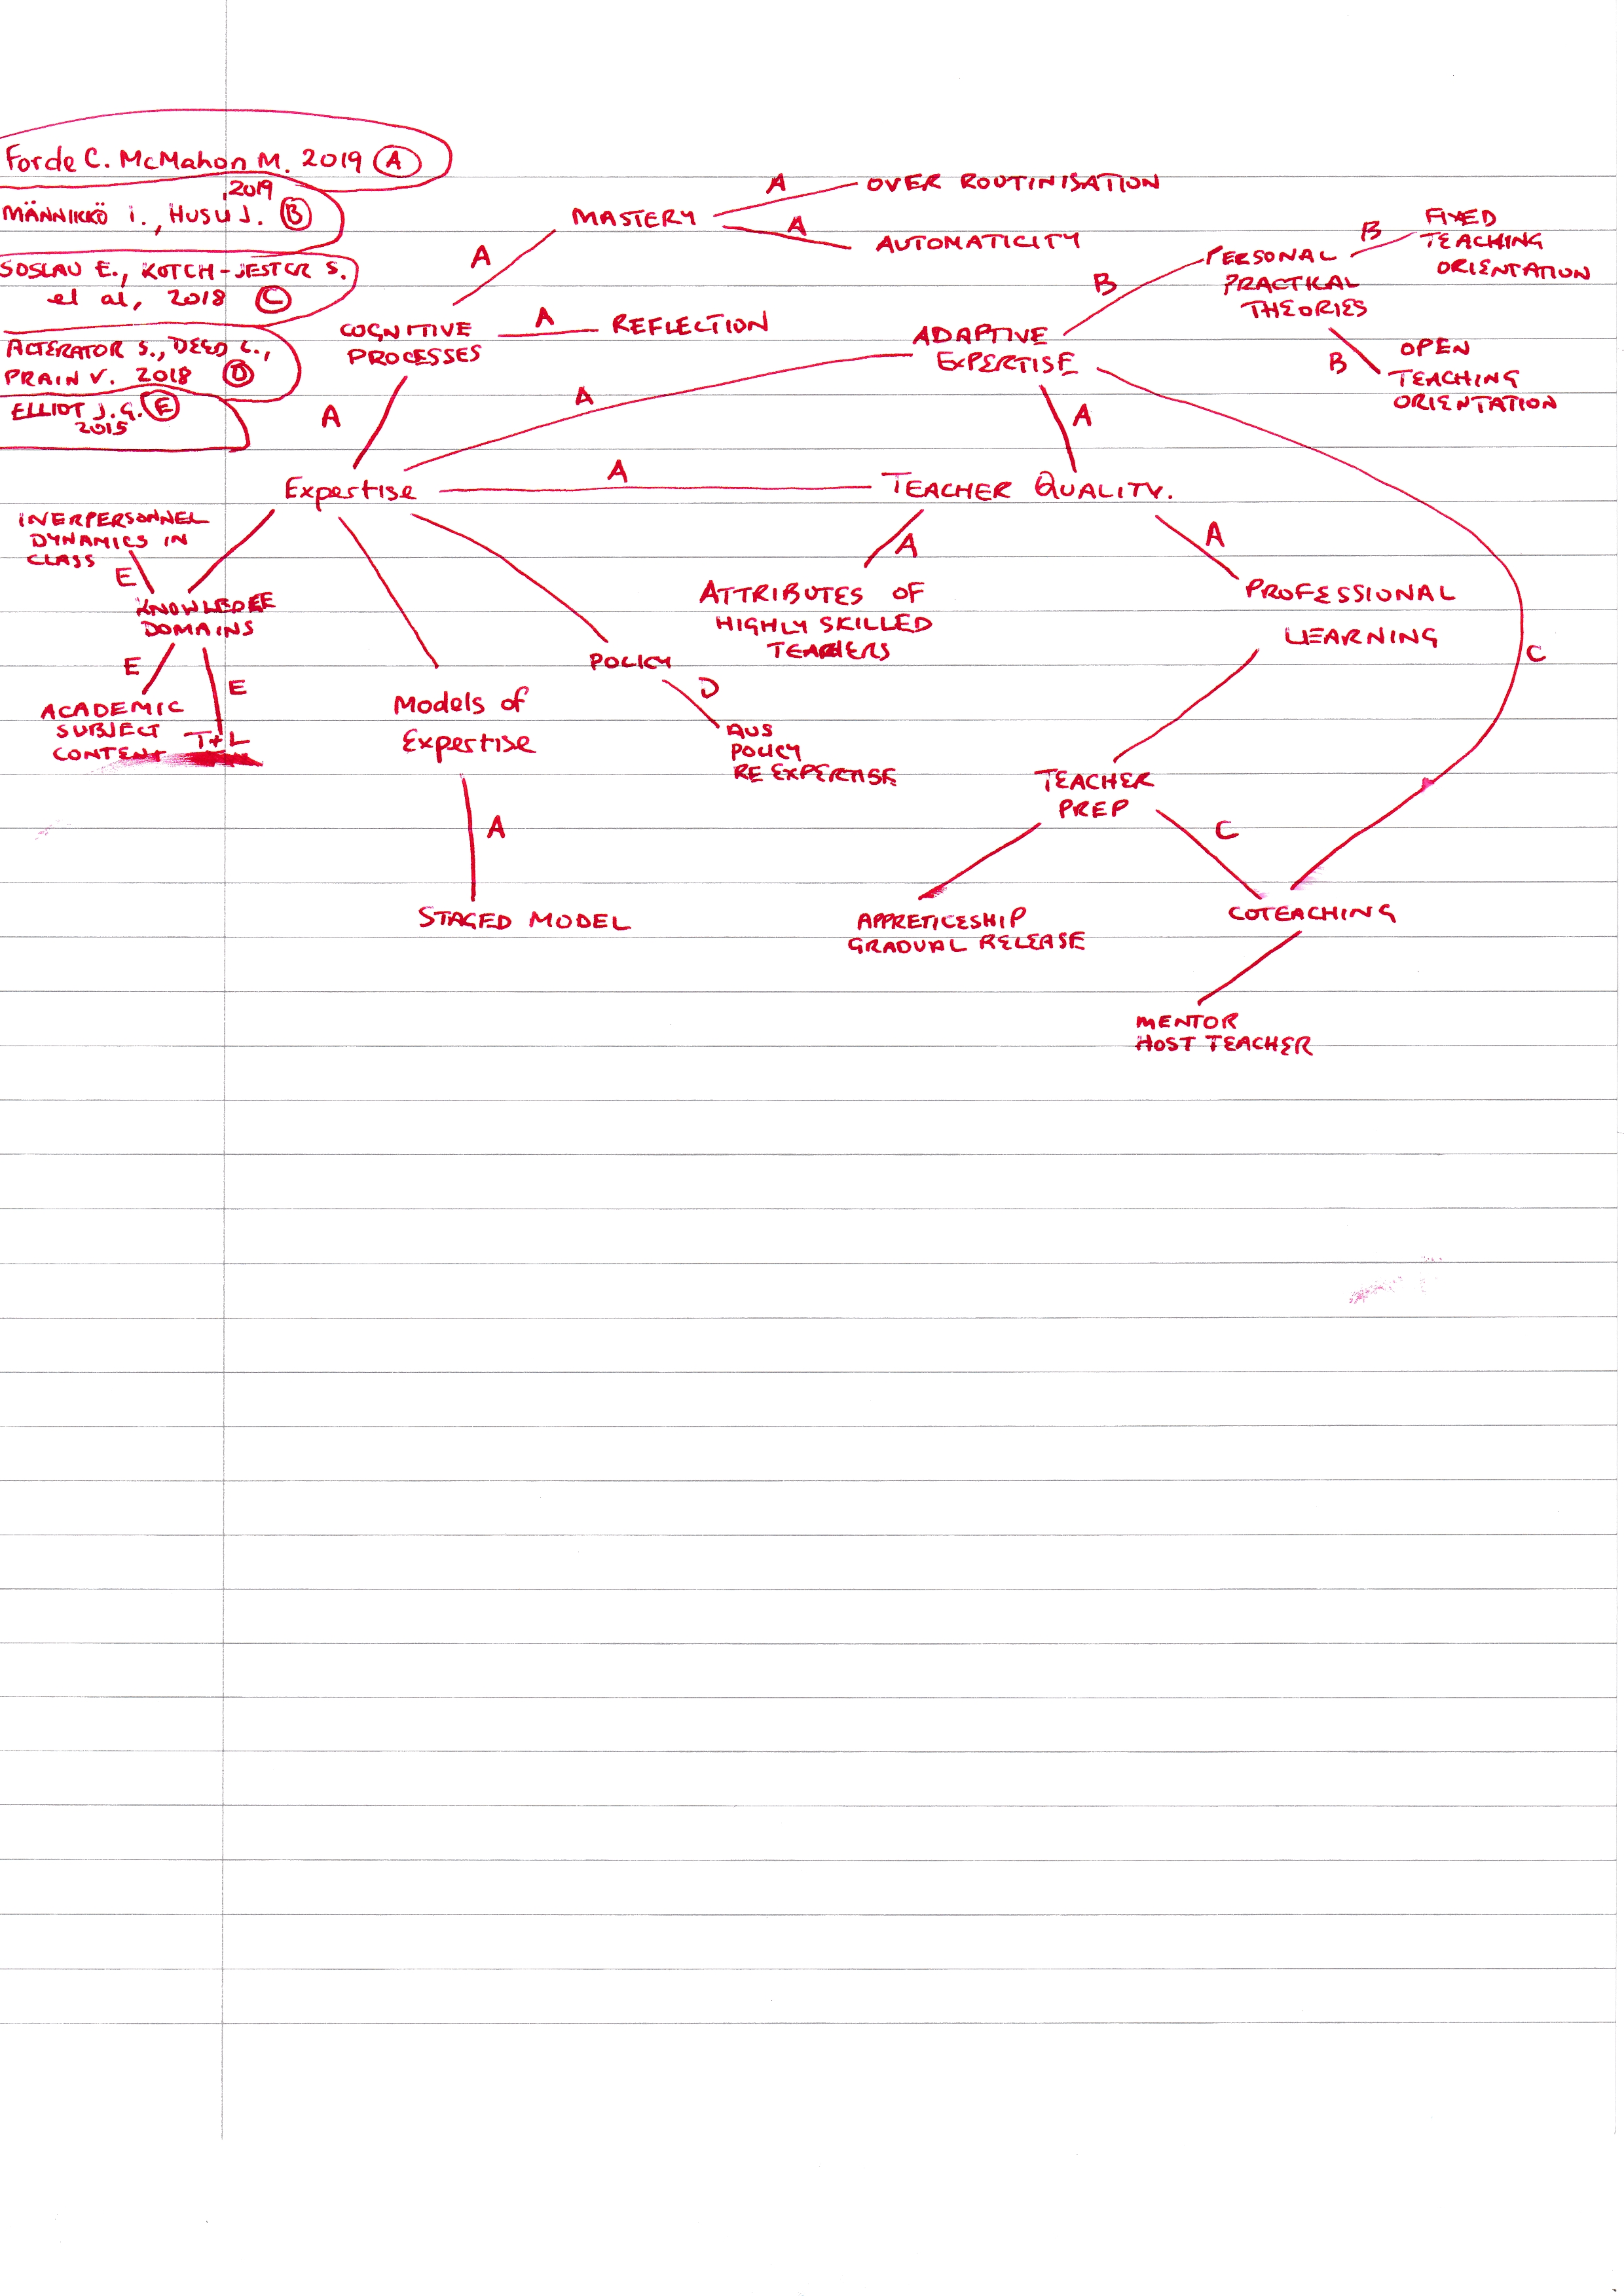 Forde C. McMahon M. 2019 (A)
, 2019
MÄNNIKKÖ i., HUSU J. (B)
SOSLAU E., KOTCH-JESTER S.
et al, 2018 (C)
ALTERATOR S., DEED C.,
PRAIN V. 2018 (D)
ELLIOT J.G. (E)
2015
A
OVER ROUTINISATION
MASTERY
A
AUTOMATICITY
A
COGNITIVE
PROCESSES
A
REFLECTION
A
ADAPTIVE
EXPERTISE
B
PERSONAL
PRACTICAL
THEORIES
B
FIXED
TEACHING
ORIENTATION
B
OPEN
TEACHING
ORIENTATION
A
A
Expertise
A
TEACHER QUALITY.
INERPERSONNEL
DYNAMICS IN
CLASS
E
KNOWLEDEE
DOMAINS
E
E
ACADEMIC
SUBJECT
CONTENT
T+L
Models of
Expertise
A
STAGED MODEL
POLICY
D
AUS
POLICY
RE EXPERTISE
A
ATTRIBUTES OF
HIGHLY SKILLED
TEACHERS
A
PROFESSIONAL
LEARNING
C
TEACHER
PREP
C
APPRETICESHIP
GRADUAL RELEASE
COTEACHING
MENTOR
HOST TEACHER